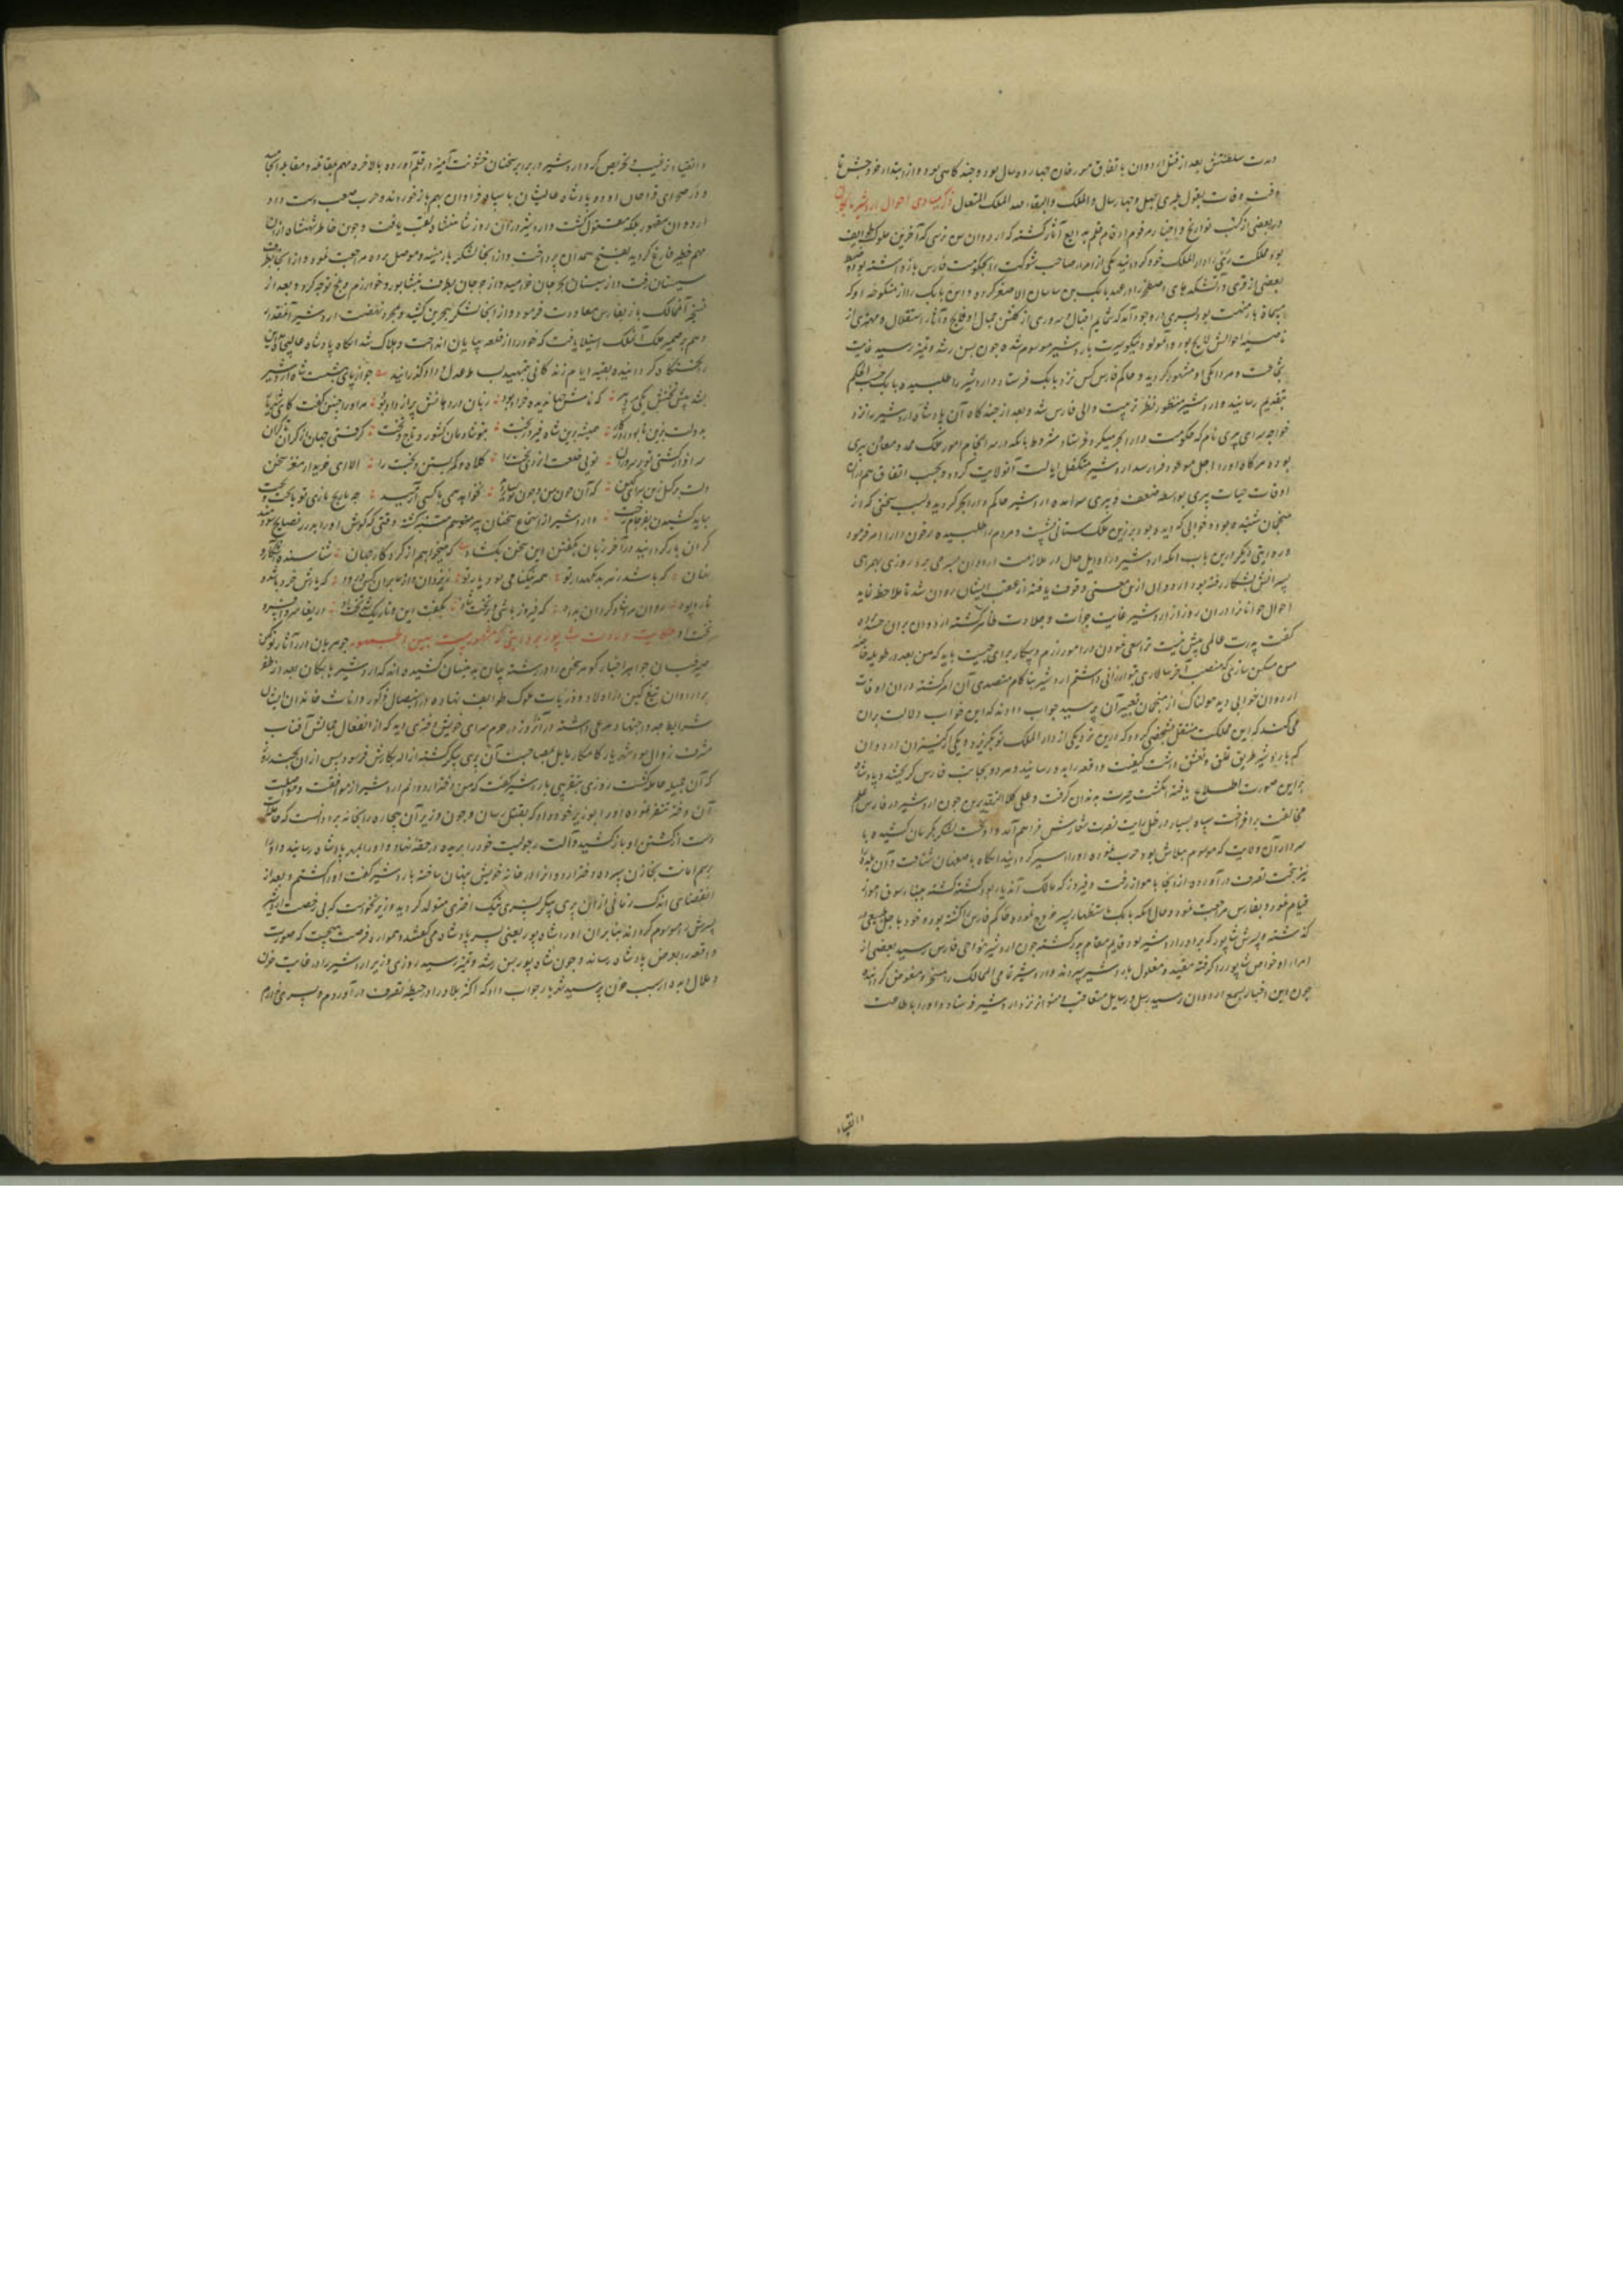 مدت سلطنتش بعد از قتل اردوان باتفاق مورخان چهارده سال بود و چند کاهی بود و از ابتداء خروجش تا
وقت وفات بقول چهل و چهار سال والملک والبقاء لله الملک المتعال ذکر مبادی احوال اردشیر بابکان
در بعضی از کتب تواریخ و اخبار مرقوم اقلام بدایع آثار کشته که اردوان بن نرسی که آخرین ملوک طوایف
بود مملکت ری را دار الملک خود کردانیده یکی از امراء صاحب شوکت را بحکومت فارس بازداشته بود و ضبط
بعضی از قری و آتشکدهای اصطخر را در عهد بابک بن ساسان الاصغر کرده و این بابک را از منکوحه او که
پسری در وجود آمد که شمایم اقبال و سروری از کلشن جمال او فایح و آثار استقلال و مهتری از
ناصیه احوالش لایح بود و آن مولود نیکو سیرت باردشیر موسوم شده چون بسن رشد و تمیز رسید غایت
شجاعت و مردانکی او مشهور کردید و حاکم فارس کس نزد بابک فرستاد و اردشیر را طلبیده بابک حسب الحکم
بتقدیم رسانید و اردشیر منظور نظر تربیت والی فارس شد و بعد از چند کاه آن پادشاه اردشیر را نزد
خواجه سرای پیری نام که حکومت دارابجرد میکرد فرستاد مشروط بانکه در سرانجام امور ملک ممد و معاون پیری
بوده هرکاه او را اجل موعود فرا رسد اردشیر متکفل ایالت آن ولایت کردد و بحسب اتفاق هم در آن
اوقات حیات پیری بواسطه ضعف و پیری سر آمده اردشیر حاکم دارابجرد کردید و بسبب سخنی که از
منجمان شنیده بود و خوابی که دیده بود برین ملک ستانی چست و مردم را طلبیده
و روایتی دیکر درین باب آنکه اردشیر در اوایل حال در ملازمت اردوان بسر می برد روزی بهمراهی
پسرانش بشکار رفته بود و اردوان ازین معنی وقوف یافته از عقب ایشان روان شد تا ملاحظه نماید
احوال جوانان را در آن روز از اردشیر غایت جرأت و جلادت ظاهر کشته اردوان بر آن حسد برده
کفت
من مسکن سازی که منصب آخر سالاری بتو ارزانی داشتم اردشیر بناکام متصدی آن امر کشته در آن اوقات
اردوان خوابی دیده هولناک از منجمان تعبیر آن پرسید جواب دادند که این خواب دلالت بران
می کند که این مملکت منتقل بشخصی کردد که درین نزدیکی از دار الملک تو بکریزد و یکی از کنیزان اردوان
که باردشیر طریق تعلق و تعشق داشت کیفیت واقعه را به او رسانید و هر دو بجانب فارس کریختند و پادشاه
برین صورت اطلاع یافته انکشت حیرت بدندان کرفت و علی کلا التقدیرین چون اردشیر در فارس علم
مخالفت برافراخت سپاه بسیار در ظل رایت نصرت شعارش فراهم آمد و او نخست لشکر بکرمان کشیده با
سردار آن ولایت که موسوم ببلاش بود حرب نموده او را اسیر کردانید آنکاه باصفهان شتافت و آن بلده را
نیز تحت تصرف درآورده از آنجا باهواز رفت و فیروز که مالک آن دیار بود کشته کشته ببنا سوق اهواز
قیام نمود و بفارس مراجعت نمود و حال آنکه بابک باستظهار پسر خروج نموده و حاکم فارس را کشته بود و خود باجل طبیعی در
کذشته و پسرش شاپور که برادر اردشیر بود قایم مقام پدر کشته چون اردشیر بنواحی فارس رسید بعضی از
امراء و خواص شاپور را کرفته مقید و مغلول باردشیر سپردند و اردشیر تمامی الممالک را مسخر و مفوض کردانیده
چون این اخبار بسمع اردوان رسید رسل و رسایل متعاقب و متواتر نزد اردشیر فرستاد و او را باطاعت
وانقیاد
وانقیاد ترغیب و تحریص کرد و اردشیر در برابر سخنان خشونت آمیز در قلم آورده بالاخره مهم بمقاتله و مقابله انجامید
و در صحرای آن دو پادشاه عالیشان با سپاه فراوان بهم باز خوردند و حرب صعب دست داد
اردوان مقهور بلکه مقتول کشت و اردشیر در آن روز شاهنشاه لقب یافت و چون خاطر شهنشاه از آن
مهم خطیر فارغ کردید بفتح همدان پرداخت و از آنجا لشکر بارمنیه و موصل برده مراجعت نمود و از آنجا بطرف
سیستان رفت و از سیستان بجرجان خرامید و از جرجان بطرف نیشابور و خوارزم و بلخ توجه کرد و بعد از
فتح آن ممالک باز بفارس معاودت فرمود و از آنجا لشکر ببحرین کشید و بمجرد نهضت اردشیر آنمقدار
وهم بر ضمیر ملک آن ملک استیلا یافت که خود را از قلعه بپایان انداخت و هلاک شد آنکاه پادشاه عالیجاه
را تختکاه کردانیده بقیه ایام زندکانی بتمهید بساط عدل و داد کذرانید چو از پای بنشست شاه اردشیر
بشد پیش تختش یکی مرد پیر که نامش جهاندیده خراد بود زبان در دهانش پر از داد بود مر او را چنین کفت کای شهریار
به دولت بزی تا بود روزکار همیشه بزین شاه فیروزبخت بتو شادمان کشور و تاج و تخت کرفتی جهان از کران تا کران
سرافراز کشتی تو بر سروران تویی خلعت ایزدی بخت را کلاه و کمر بستن و تخت را الا ای خریدار مغز سخن
دلت بر کسل زین سرای کهن که آن چون من و چون تو بسیار دید نخواهد همی با کسی آرمید چه با رنج باشی چه با تاج و تخت
بباید کشیدن بفرجام رخت و اردشیر از استماع سخنان پیر متنبه کشته وقتی که کوش او را بدرر نصایح
کران بار کردانید در آخر زبان بکفتن این سخن بکشاد که میخواهم از کردکار جهان شناسنده آشکار و
نهان که باشد ز هر بد نکهدار تو همه نیکنامی بود یار تو ز یزدان و از ما بر آن کس درود که تارش خرد باشد و
داد پود روان مرا شاد کردان بداد که پیروز باشی و بر تخت شاد بکفت این و تاریک شد بخت او دریغ آن سر و افسر و
تخت او حکایت ولادت شاپور بروایتی که مشهور است بین الجمهور جوهریان درر آثار نیکوکن
صیرفیان جواهر اخبار کوهر سخن را در رشته بیان بدینسان کشیده اند که اردشیر بابکان بعد از ظفر
بر اردوان تیغ کین در اولاد و ذریات ملوک طوایف نهاده در استیصال ذکور و اناث خاندان ایشان
شرایط جد و جهد مرعی داشته در آن روز در حرم سرای خویش دختری دید که از انفعال جمالش آفتاب
مشرف زوال بود شهریار کامکار مایل بمصاحبت آن پری پیکر کشته ازاله بکارتش فرمود پس از آن بچند روز
که آن جمیله حامله کشت روزی بتقریبی باردشیر کفت که من دختر اردوانم اردشیر از موافقت و مواصلت
آن دختر متنفر نموده او را بوزیر خود داد که بقتل رسان و چون وزیر آن بیچاره را بخانه برد دانست که حامله است
دست از کشتن او باز کشید و آلت رجولیت خود را بریده در حقه نهاد و او را بمهر پادشاه رسانید و او را
برسم امانت بخازن سپرده و دختر اردوان را در خانه خویش پنهان ساخته باردشیر کفت او را کشتم و بعد از
انقضای اندک زمانی از آن پری پیکر پسری نیک اختری متولد کردید و وزیر نخواست که بی رخصت اردشیر
پسرش را موسوم کرداند بنا بران او را شاه پور یعنی پسر پادشاه می کفتند و همواره فرصت میجست که صورت
واقعه را بعرض پادشاه رساند و چون شاه پور بسن رشد و تمیز رسید روزی وزیر اردشیر را در غایت حزن
و ملال دید از سبب حزن پرسید شهریار جواب داد که اکثر بلاد را در حیطه تصرف در آوردم و پسری ندارم